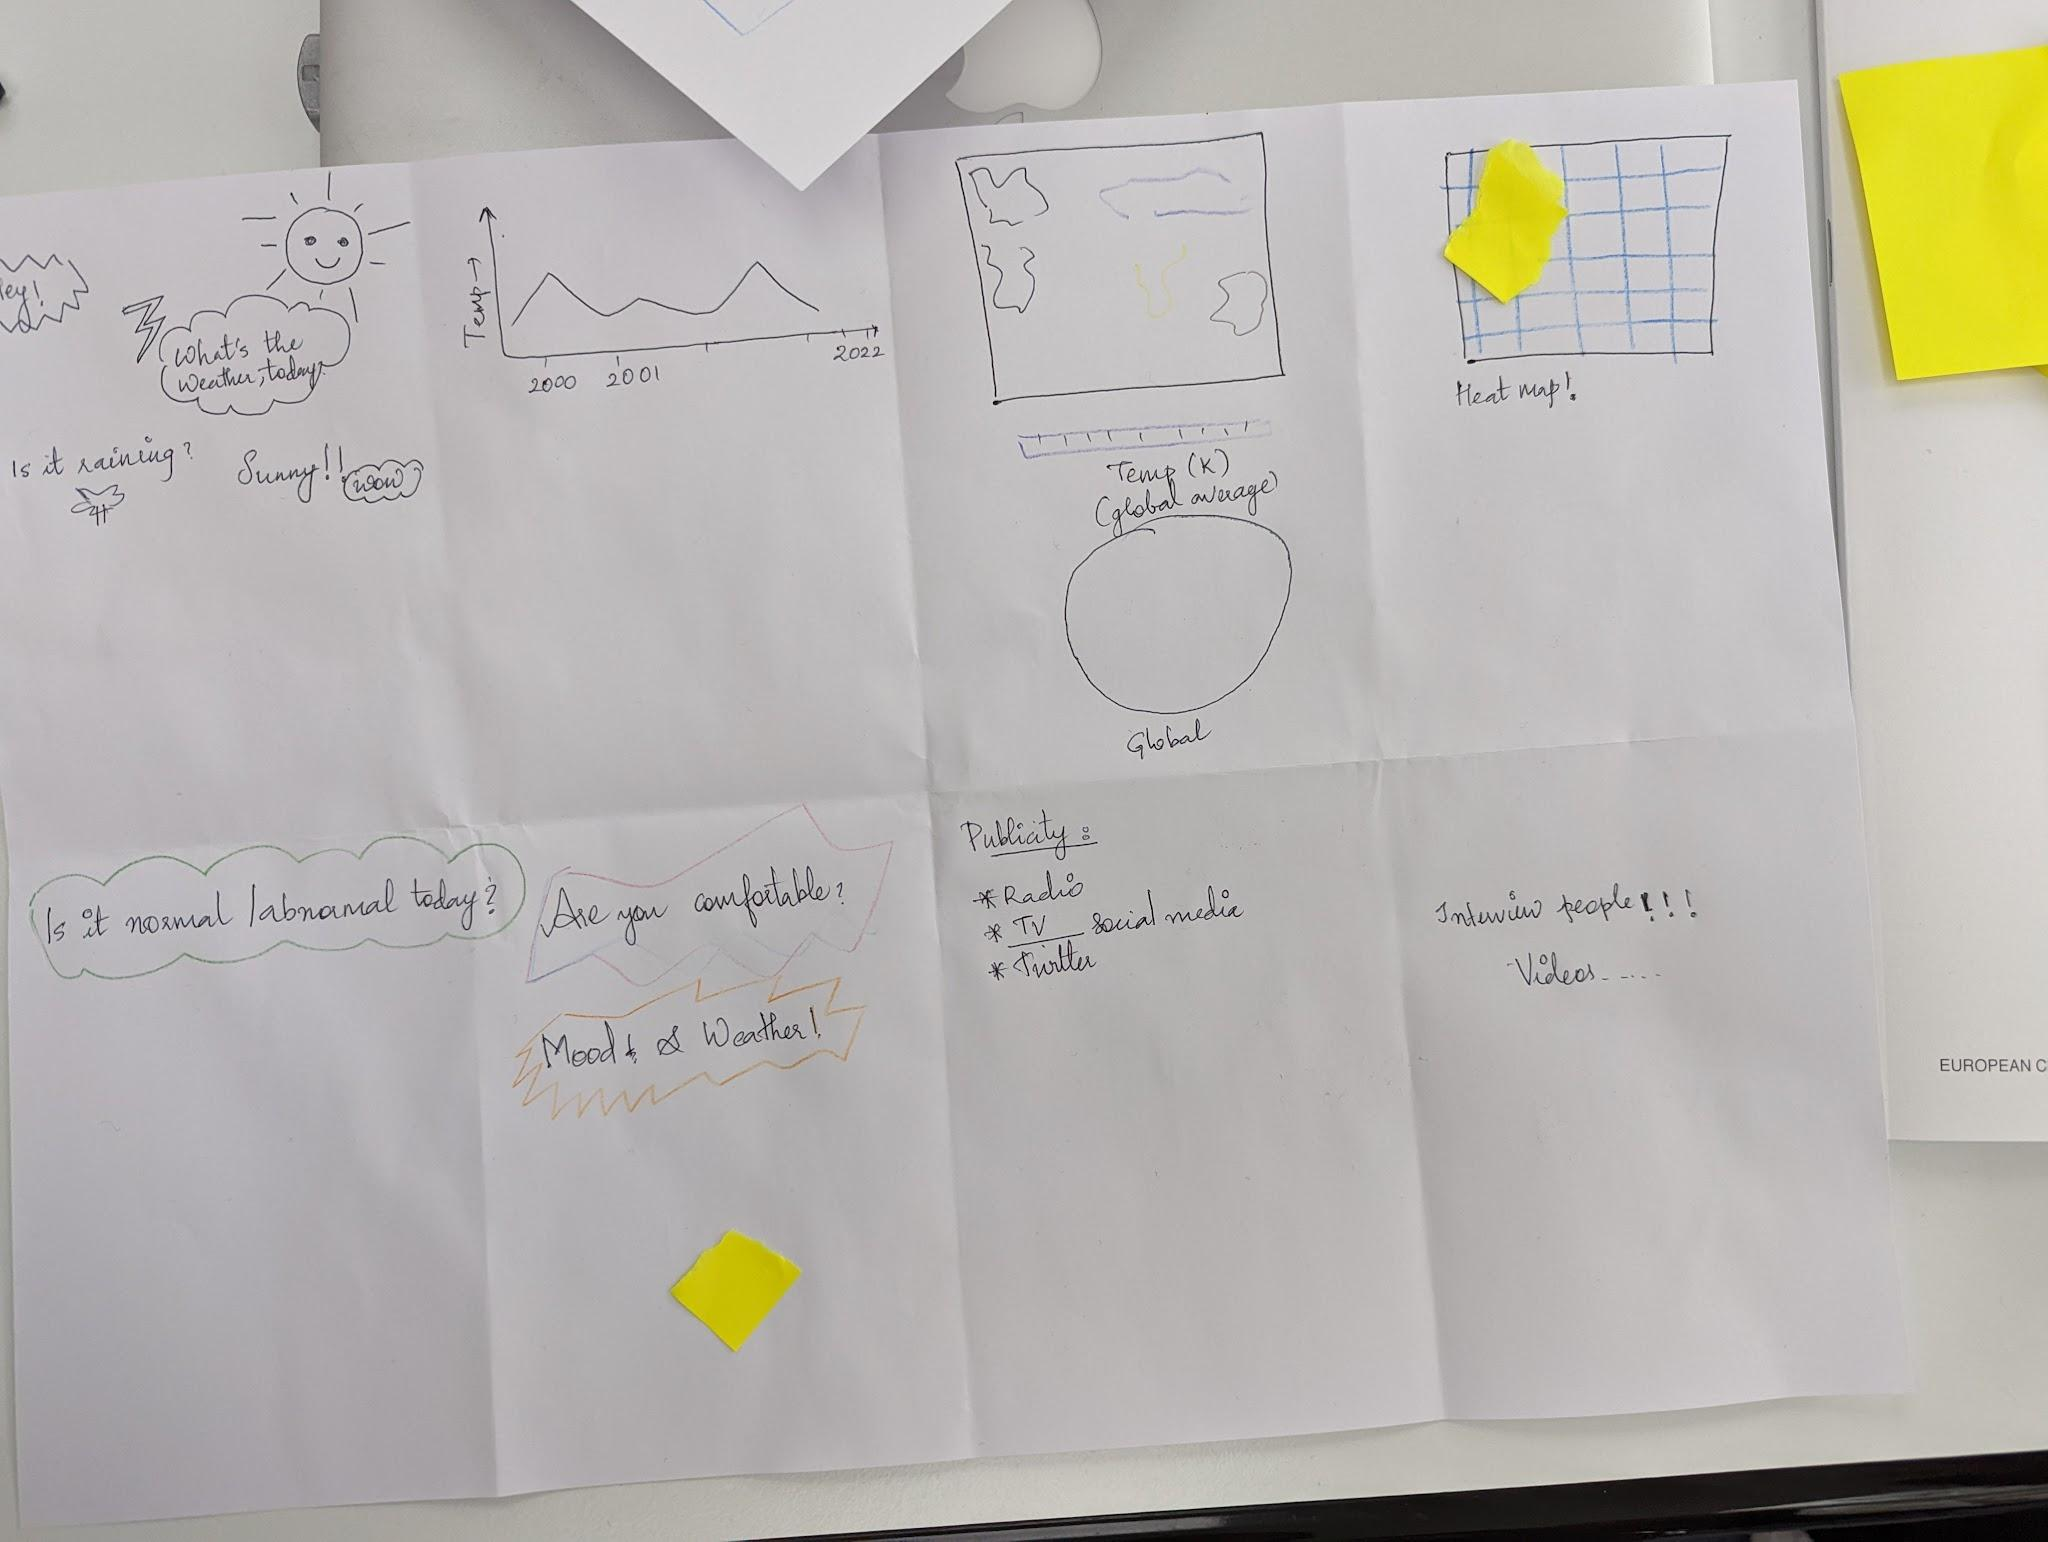 Hey!
What's the
weather, today?
Is it raining?
Sunny!!
wow
Temp →
2000 2001 2022
Temp (K)
(global average)
Global
Heat map!
Is it normal /abnormal today?
Are you comfortable?
Mood & Weather!
Publicity:
* Radio
* TV social media
* Twitter
Interview people!!!
Videos.....
EUROPEAN C